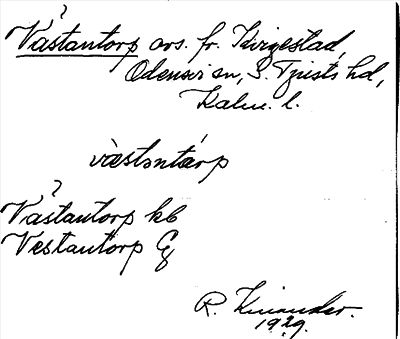 ?
Västantorp avs. fr. Kvigestad,
Odensvi sn, S. Tjusts hd,
Kalm. l.
västəntàrp
?
Västantorp kb
Vestantorp Gf
R. Kinander.
1929.